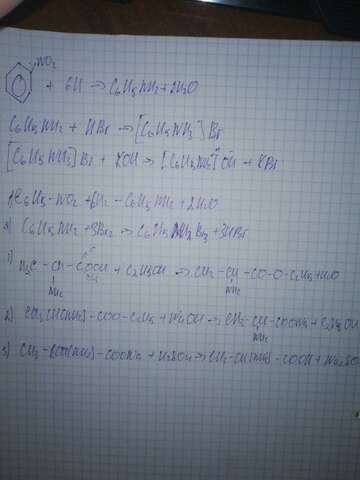 NO₂
+ 6H → C₆H₅NH₂ + 2H₂O
C₆H₅NH₂ + HBr → [C₆H₅NH₃] Br
[C₆H₅NH₃]Br + KOH → [C₆H₅NH₃]⁺OH⁻ + KBr
C₆H₅-NO₂ + 6H₂ - C₆H₅NH₂ + 2H₂O
C₆H₅NH₂ + 3Br₂ → C₆H₂NH₂Br₃ + 3HBr
1) H₃C - CH - COOH + C₂H₅OH → CH₃ - CH - CO-O-C₂H₅ + H₂O
NH₂ NH₂
2) CH₃CH(NH₂) - COO - C₂H₅ + NaOH → CH₃ - CH - COONa + C₂H₅OH
NH₂
3) CH₃ - CH(NH₂) - COONa + H₂SO₄ → CH₃ - CH(NH₂) - COOH +